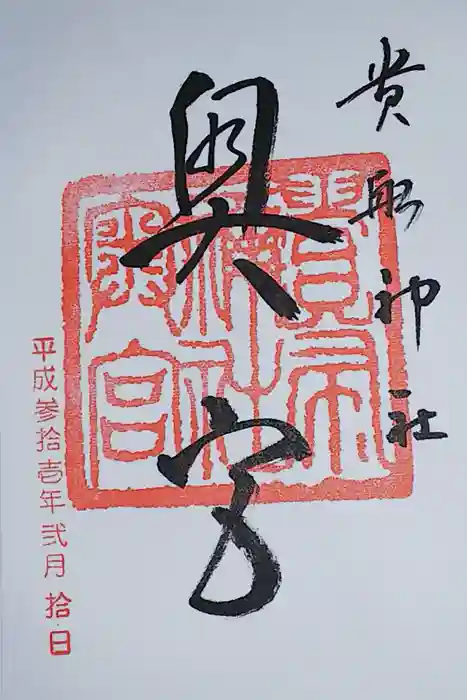 貴船神社
奥宮
貴布
禰社
奥宮
平成参拾壱年弐月拾日